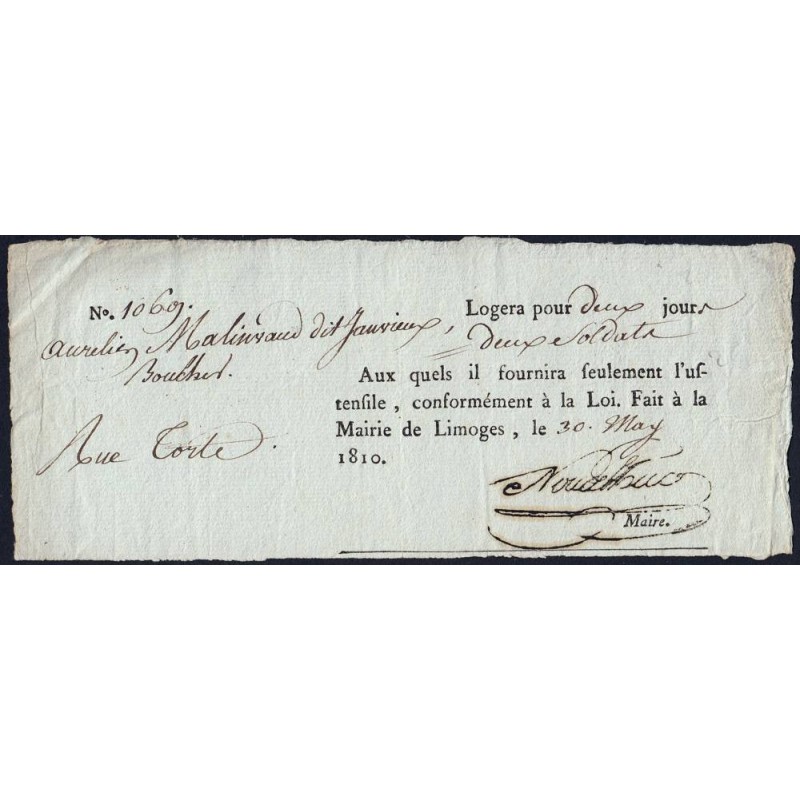 No. 1069. Logera pour deux jours
Aurelien Malinvaud dit Janvieux, deux Soldats
Boucher.
Aux quels il fournira ſeulement l'uſ-
tenſile, conformément à la Loi. Fait à la
Rue Torte. Mairie de Limoges, le 30. May
1810.
Maire.